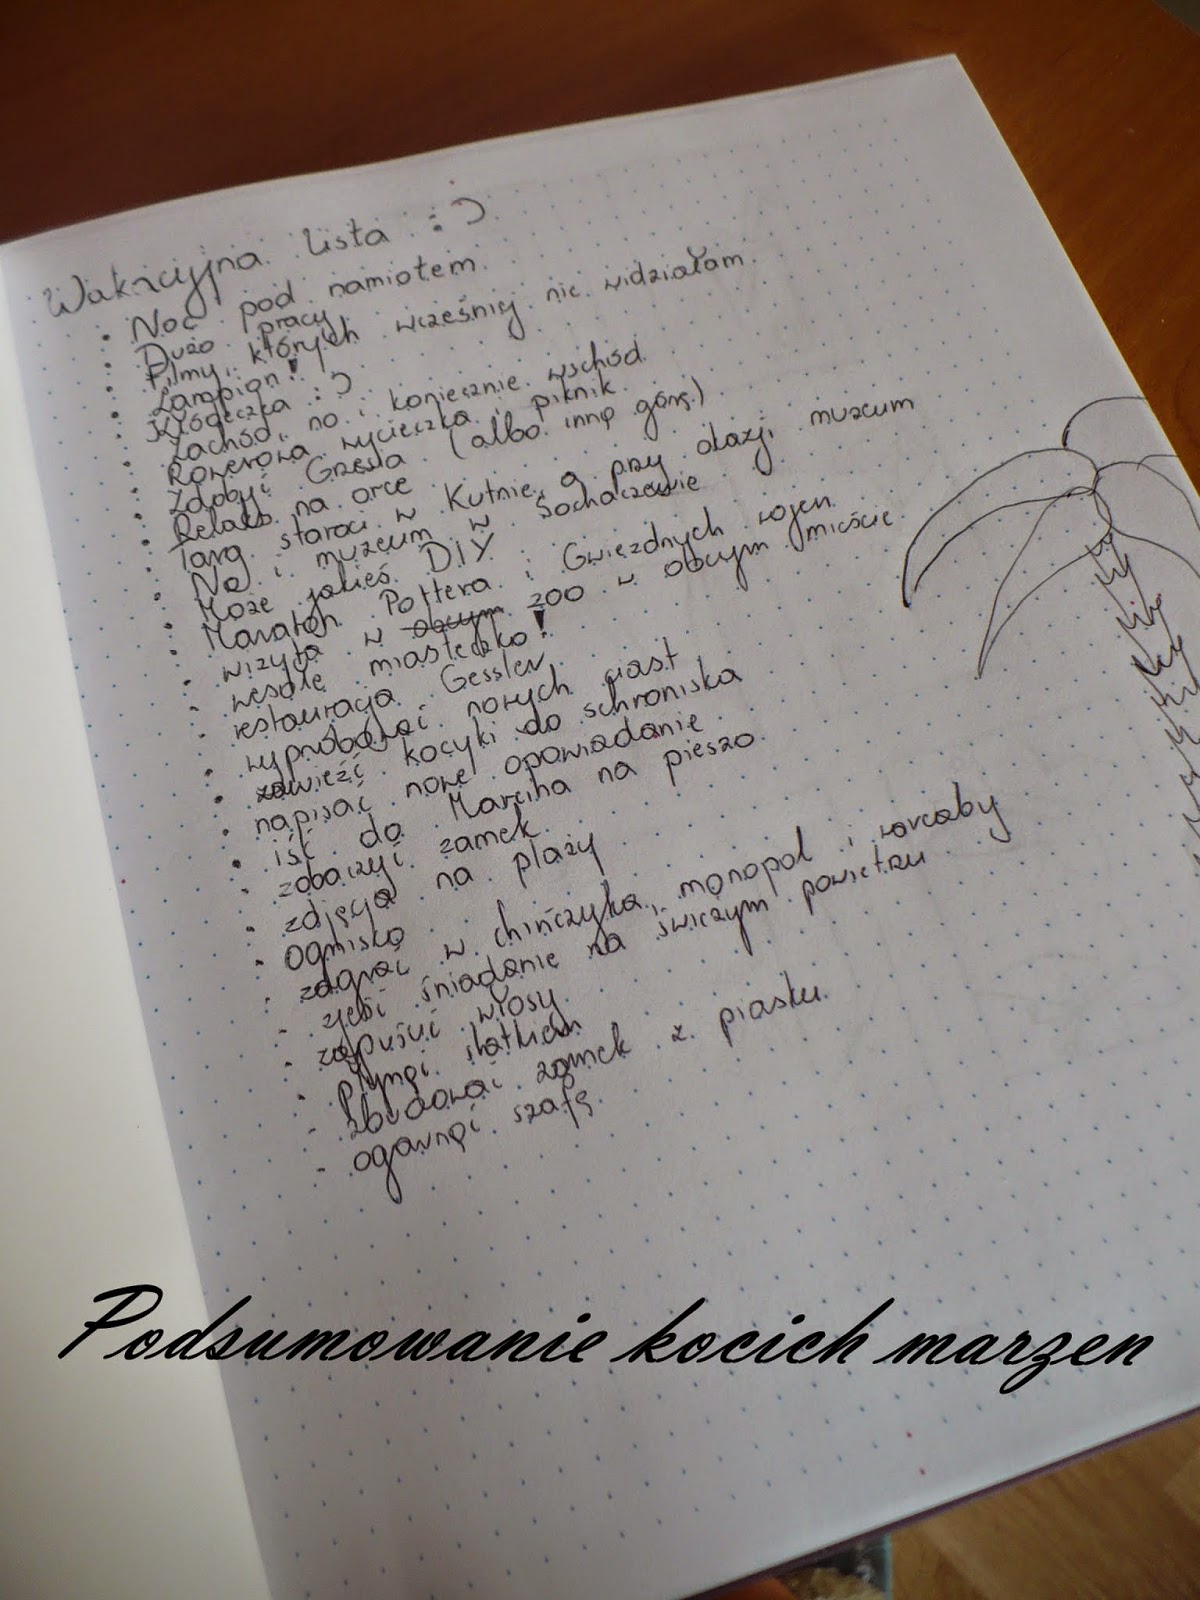 Wakacyjna lista :)
Noc pod namiotem
Dużo pracy
Filmy, których wcześniej nie widziałam
Lampion!
Kłódeczka :)
Zachód, no i koniecznie wschód
Rowerowa wycieczka i piknik
Zdobyć Grzesia (albo inną górę)
Relaks na orce
Targ staroci w Kutnie, a przy okazji muzeum
No i muzeum w Sochaczewie
Może jakieś DIY
Maraton Pottera i Gwiezdnych wojen
wizyta w obcym zoo w obcym mieście
wesołe miasteczko!
restauracja Gessler
wypróbować nowych ciast
zawieźć kocyki do schroniska
napisać nowe opowiadanie
iść do Marcina na pieszo
zobaczyć zamek
zdjęcia na plaży
Ognisko
zagrać w chińczyka, monopol i warcaby
zjeść śniadanie na świeżym powietrzu
zapuścić włosy
płynąć statkiem
zbudować zamek z piasku
ogarnąć szafę
Podsumowanie kocich marzen